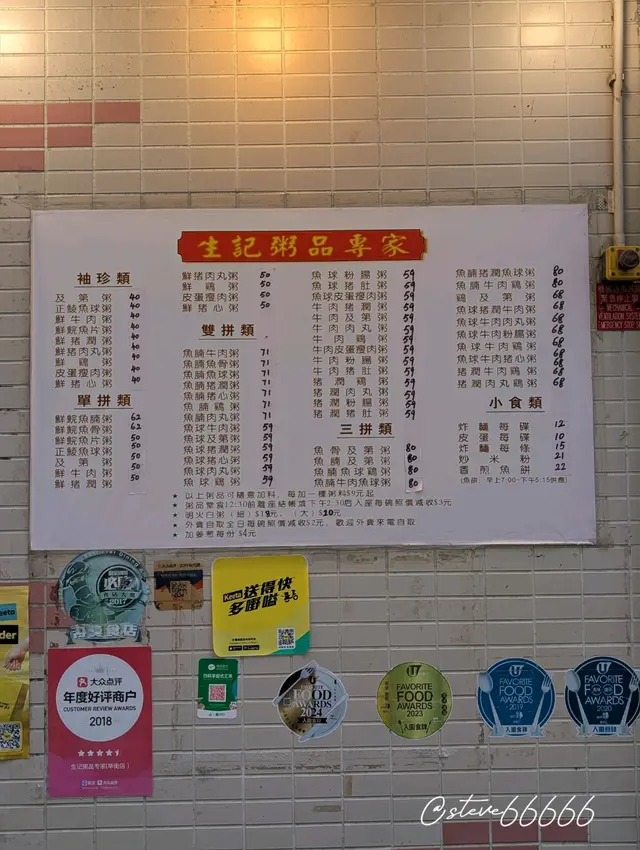 生記粥品專家
袖珍類
及第粥 40
正鯪魚球粥 40
鮮牛肉粥 40
鮮鯇魚片粥 40
鮮猪潤粥 40
鮮猪肉丸粥 40
鮮鷄粥 40
皮蛋瘦肉粥 40
鮮猪心粥 40
單拼類
鮮鯇魚腩粥 62
鮮鯇魚骨粥 62
鮮鯇魚片粥 50
正鯪魚球粥 50
及第粥 50
鮮牛肉粥 50
鮮猪潤粥 50
鮮猪肉丸粥 50
鮮鷄粥 50
皮蛋瘦肉粥 50
鮮猪心粥 50
雙拼類
魚腩牛肉粥 71
魚腩魚骨粥 71
魚腩魚球粥 71
魚腩猪潤粥 71
魚腩猪心粥 71
魚腩鷄粥 71
魚腩肉丸粥 71
魚球牛肉粥 59
魚球及第粥 59
魚球猪潤粥 59
魚球猪心粥 59
魚球肉丸粥 59
魚球鷄粥 59
魚球粉腸粥 59
魚球猪肚粥 59
魚球皮蛋瘦肉粥 59
牛肉猪潤粥 59
牛肉及第粥 59
牛肉肉丸粥 59
牛肉鷄粥 59
牛肉皮蛋瘦肉粥 59
牛肉粉腸粥 59
牛肉猪肚粥 59
猪潤鷄粥 59
猪潤肉丸粥 59
猪潤粉腸粥 59
猪潤猪肚粥 59
三拼類
魚骨及第粥 80
魚腩及第粥 80
魚腩魚球鷄粥 80
魚腩牛肉魚球粥 80
魚腩猪潤魚球粥 80
魚腩牛肉鷄粥 80
鷄及第粥 68
魚球猪潤牛肉粥 68
魚球牛肉肉丸粥 68
魚球牛肉粉腸粥 68
魚球牛肉鷄粥 68
魚球牛肉猪心粥 68
猪潤牛肉鷄粥 68
猪潤肉丸鷄粥 68
小食類
炸麵每碟 12
皮蛋每碟 10
炸麵每條 15
炒米粉 21
香煎魚餅 22
(魚餅：早上7:00-下午5:15供應)
★ 以上粥品可隨意加料，每加一種粥料$9元起
★ 粥品堂食12:30前離座結帳或下午2:30后入座每碗照價减收$3元
★ 明火白粥（細）$18元，（大）$20元
★ 外賣自取全日每碗照價减收$2元，歡迎外賣來電自取
★ 加姜葱每份$4元
2017
大众点评
年度好评商户
CUSTOMER REVIEW AWARDS
2018
生记粥品专家(毕街店)
Keeta送得快
多嘢嗌
FAVORITE
FOOD
AWARDS
2024
入圍食肆
FAVORITE
FOOD
AWARDS
2023
入圍食肆
U
FAVORITE
FOOD
AWARDS
2019
入圍食肆
U
FAVORITE
FOOD
AWARDS
2020
入圍食肆
@steve66666